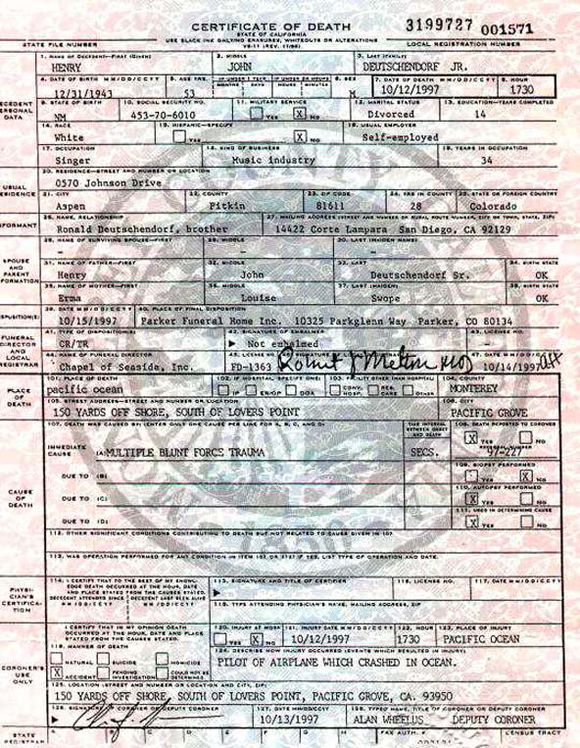 CERTIFICATE OF DEATH
STATE OF CALIFORNIA
USE BLACK INK ONLY/NO ERASURES, WHITEOUTS OR ALTERATIONS
3199727 001571
STATE FILE NUMBER
LOCAL REGISTRATION NUMBER
1. NAME OF DECEDENT—FIRST (GIVEN) 2. MIDDLE 3. LAST (FAMILY)
HENRY JOHN DEUTSCHENDORF JR.
4. DATE OF BIRTH MM/DD/CCYY 5. AGE YRS. IF UNDER 1 YEAR IF UNDER 24 HOURS 6. SEX 7. DATE OF DEATH MM/DD/CCYY 8. HOUR
MONTHS DAYS HOURS MINUTES
12/31/1943 53 M 10/12/1997 1730
DECEDENT PERSONAL DATA
9. STATE OF BIRTH 10. SOCIAL SECURITY NO. 11. MILITARY SERVICE 12. MARITAL STATUS 13. EDUCATION—YEARS COMPLETED
NM 453-70-6010 YES X NO Divorced 14
14. RACE 15. HISPANIC—SPECIFY 16. USUAL EMPLOYER
White YES X NO Self-employed
17. OCCUPATION 18. KIND OF BUSINESS 19. YEARS IN OCCUPATION
Singer Music industry 34
20. RESIDENCE—STREET AND NUMBER OR LOCATION
0570 Johnson Drive
USUAL RESIDENCE
21. CITY 22. COUNTY 23. ZIP CODE 24. YRS IN COUNTY 25. STATE OR FOREIGN COUNTRY
Aspen Pitkin 81611 28 Colorado
INFORMANT
26. NAME, RELATIONSHIP 27. MAILING ADDRESS (STREET AND NUMBER OR RURAL ROUTE NUMBER, CITY OR TOWN, STATE, ZIP)
Ronald Deutschendorf, brother 14422 Corte Lampara San Diego, CA 92129
SPOUSE AND PARENT INFORMATION
28. NAME OF SURVIVING SPOUSE—FIRST 29. MIDDLE 30. LAST (MAIDEN NAME)
- - -
31. NAME OF FATHER—FIRST 32. MIDDLE 33. LAST 34. BIRTH STATE
Henry John Deutschendorf Sr. OK
35. NAME OF MOTHER—FIRST 36. MIDDLE 37. LAST (MAIDEN) 38. BIRTH STATE
Erma Louise Swope OK
DISPOSITION(S)
39. DATE MM/DD/CCYY 40. PLACE OF FINAL DISPOSITION
10/15/1997 Parker Funeral Home Inc. 10325 Parkglenn Way Parker, CO 80134
FUNERAL DIRECTOR AND LOCAL REGISTRAR
41. TYPE OF DISPOSITION(S) 42. SIGNATURE OF EMBALMER 43. LICENSE NO.
CR/TR Not embalmed -
44. NAME OF FUNERAL DIRECTOR 45. LICENSE NO. 47. DATE MM/DD/CCYY
Chapel of Seaside, Inc. FD-1363 10/14/1997
PLACE OF DEATH
101. PLACE OF DEATH 102. IF HOSPITAL, SPECIFY ONE: 103. FACILITY OTHER THAN HOSPITAL: 104. COUNTY
pacific ocean IP ER/OP DOA CONV. HOSP. RES. CARE OTHER MONTEREY
105. STREET ADDRESS—STREET AND NUMBER OR LOCATION 106. CITY
150 YARDS OFF SHORE, SOUTH OF LOVERS POINT PACIFIC GROVE
CAUSE OF DEATH
107. DEATH WAS CAUSED BY: (ENTER ONLY ONE CAUSE PER LINE FOR A, B, C, AND D) TIME INTERVAL BETWEEN ONSET AND DEATH 108. DEATH REPORTED TO CORONER
X YES NO
IMMEDIATE CAUSE (A) MULTIPLE BLUNT FORCS TRAUMA SECS. 97-227
109. BIOPSY PERFORMED
DUE TO (B) YES X NO
110. AUTOPSY PERFORMED
DUE TO (C) X YES NO
111. USED IN DETERMINING CAUSE
DUE TO (D) X YES NO
112. OTHER SIGNIFICANT CONDITIONS CONTRIBUTING TO DEATH BUT NOT RELATED TO CAUSE GIVEN IN 107
113. WAS OPERATION PERFORMED FOR ANY CONDITION IN ITEM 107 OR 112? IF YES, LIST TYPE OF OPERATION AND DATE.
PHYSICIAN'S CERTIFICATION
114. I CERTIFY THAT TO THE BEST OF MY KNOWLEDGE DEATH OCCURRED AT THE HOUR, DATE AND PLACE STATED FROM THE CAUSES STATED.
DECEDENT ATTENDED SINCE DECEDENT LAST SEEN ALIVE
MM/DD/CCYY MM/DD/CCYY
115. SIGNATURE AND TITLE OF CERTIFIER 116. LICENSE NO. 117. DATE MM/DD/CCYY
118. TYPE ATTENDING PHYSICIAN'S NAME, MAILING ADDRESS, ZIP
CORONER'S USE ONLY
I CERTIFY THAT IN MY OPINION DEATH OCCURRED AT THE HOUR, DATE AND PLACE STATED FROM THE CAUSES STATED.
120. INJURY AT WORK 121. INJURY DATE MM/DD/CCYY 122. HOUR 123. PLACE OF INJURY
YES X NO 10/12/1997 1730 PACIFIC OCEAN
119. MANNER OF DEATH
NATURAL SUICIDE HOMICIDE
X ACCIDENT PENDING INVESTIGATION COULD NOT BE DETERMINED
124. DESCRIBE HOW INJURY OCCURRED (EVENTS WHICH RESULTED IN INJURY)
PILOT OF AIRPLANE WHICH CRASHED IN OCEAN.
125. LOCATION (STREET AND NUMBER OR LOCATION AND CITY, ZIP)
150 YARDS OFF SHORE, SOUTH OF LOVERS POINT, PACIFIC GROVE, CA. 93950
126. SIGNATURE OF CORONER OR DEPUTY CORONER 127. DATE MM/DD/CCYY 128. TYPED NAME, TITLE OF CORONER OR DEPUTY CORONER
10/13/1997 ALAN WHEELUS DEPUTY CORONER
STATE REGISTRAR
A B C D E F G H FAX AUTH. # CENSUS TRACT